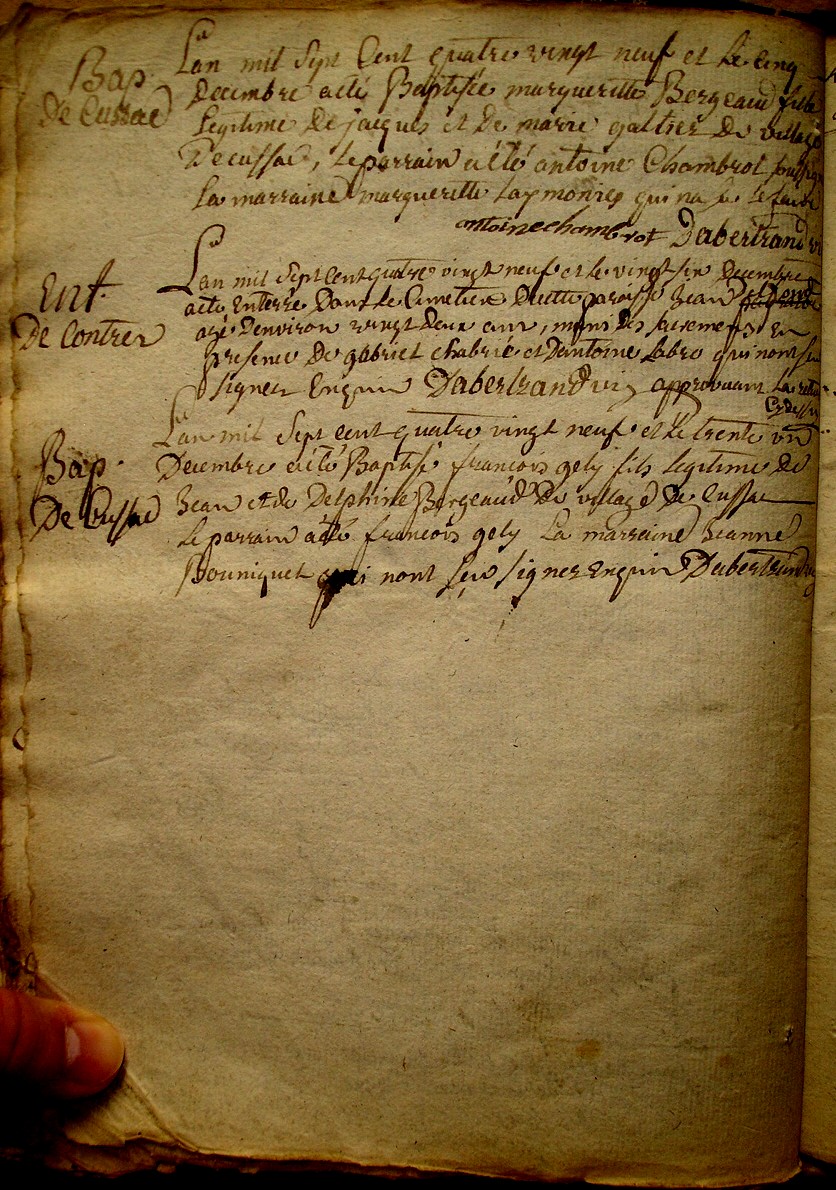 Bap.
De Cussac
Lan mil Sept Cent quatre vingt neuf et le Cinq
Decembre a eté Baptisée margueritte Bergeaud fille
Legitime De jacques et de marie galtier du village
De cussac, Le parrain a été antoine Chambrot
La marraine margueritte qui na
antoine chambrot Dabertrand
Ent.
De Contres
Lan mil Sept Cent quatre vingt neuf et le vingt six Decembre
a eté Enterré Dans le Cimetiere De cette paroisse Jean
agé Denviron vingt Deux ans, muni des sacremens En
presence De gabriel chabrié et Dantoine Labro qui nont seu
signer Enquis Dabertrand vic approuvant la
Cydessus
Bap.
De Cussac
Lan mil Sept cent quatre vingt neuf et le trente un
Decembre a eté Baptisé francois gely fils Legitime de
Jean et de Delphine Bergeaud Du village De Cussac
Le parrain a été francois gely La marraine Jeanne
Bouniquet qui nont seu signer Enquis Dabertrand